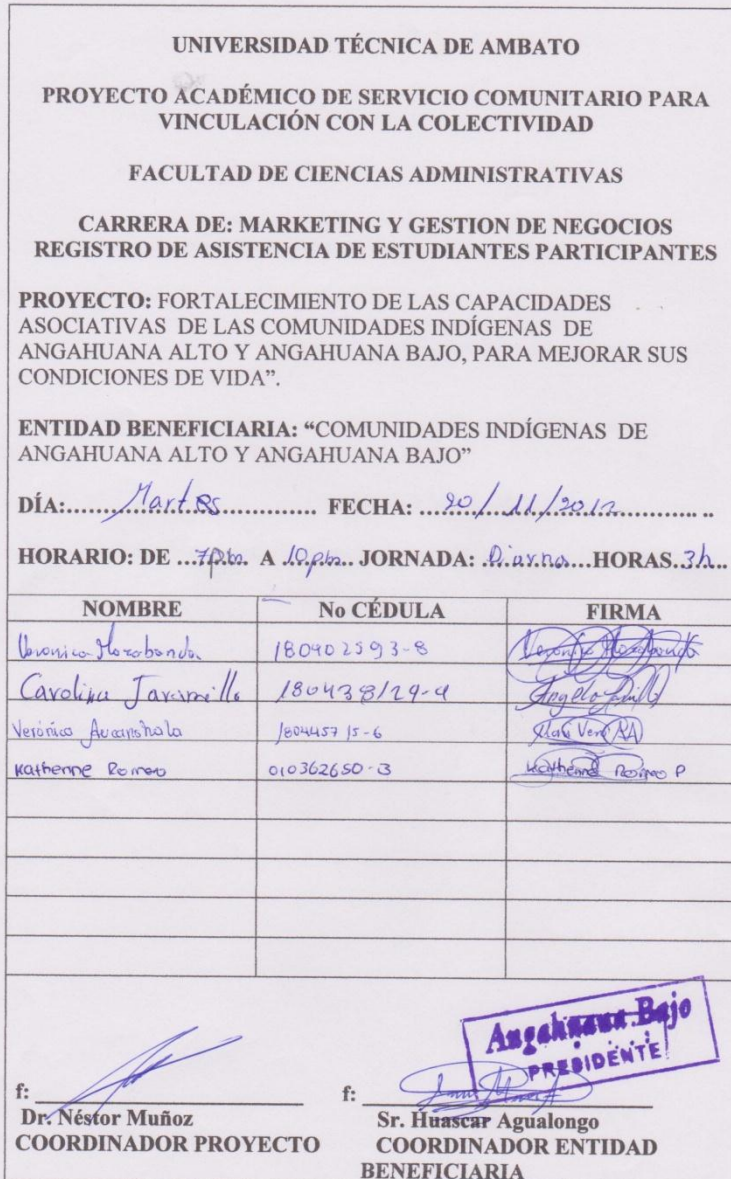 UNIVERSIDAD TÉCNICA DE AMBATO
PROYECTO ACADÉMICO DE SERVICIO COMUNITARIO PARA
VINCULACIÓN CON LA COLECTIVIDAD
FACULTAD DE CIENCIAS ADMINISTRATIVAS
CARRERA DE: MARKETING Y GESTION DE NEGOCIOS
REGISTRO DE ASISTENCIA DE ESTUDIANTES PARTICIPANTES
PROYECTO: FORTALECIMIENTO DE LAS CAPACIDADES
ASOCIATIVAS DE LAS COMUNIDADES INDÍGENAS DE
ANGAHUANA ALTO Y ANGAHUANA BAJO, PARA MEJORAR SUS
CONDICIONES DE VIDA”.
ENTIDAD BENEFICIARIA: “COMUNIDADES INDÍGENAS DE
ANGAHUANA ALTO Y ANGAHUANA BAJO”
DÍA: Martes FECHA: 20/11/2012
HORARIO: DE 7pm A 10pm JORNADA: Diurna HORAS 3h
NOMBRE No CÉDULA FIRMA
Veronica 180402593-8 Veronica
Carolina Jaramillo
Verónica 
Katherine Romeo 010362650-3 Katherine Romeo P
Angahuana Bajo
PRESIDENTE
f: f:
Dr. Néstor Muñoz Sr. Huascar Agualongo
COORDINADOR PROYECTO COORDINADOR ENTIDAD
BENEFICIARIA